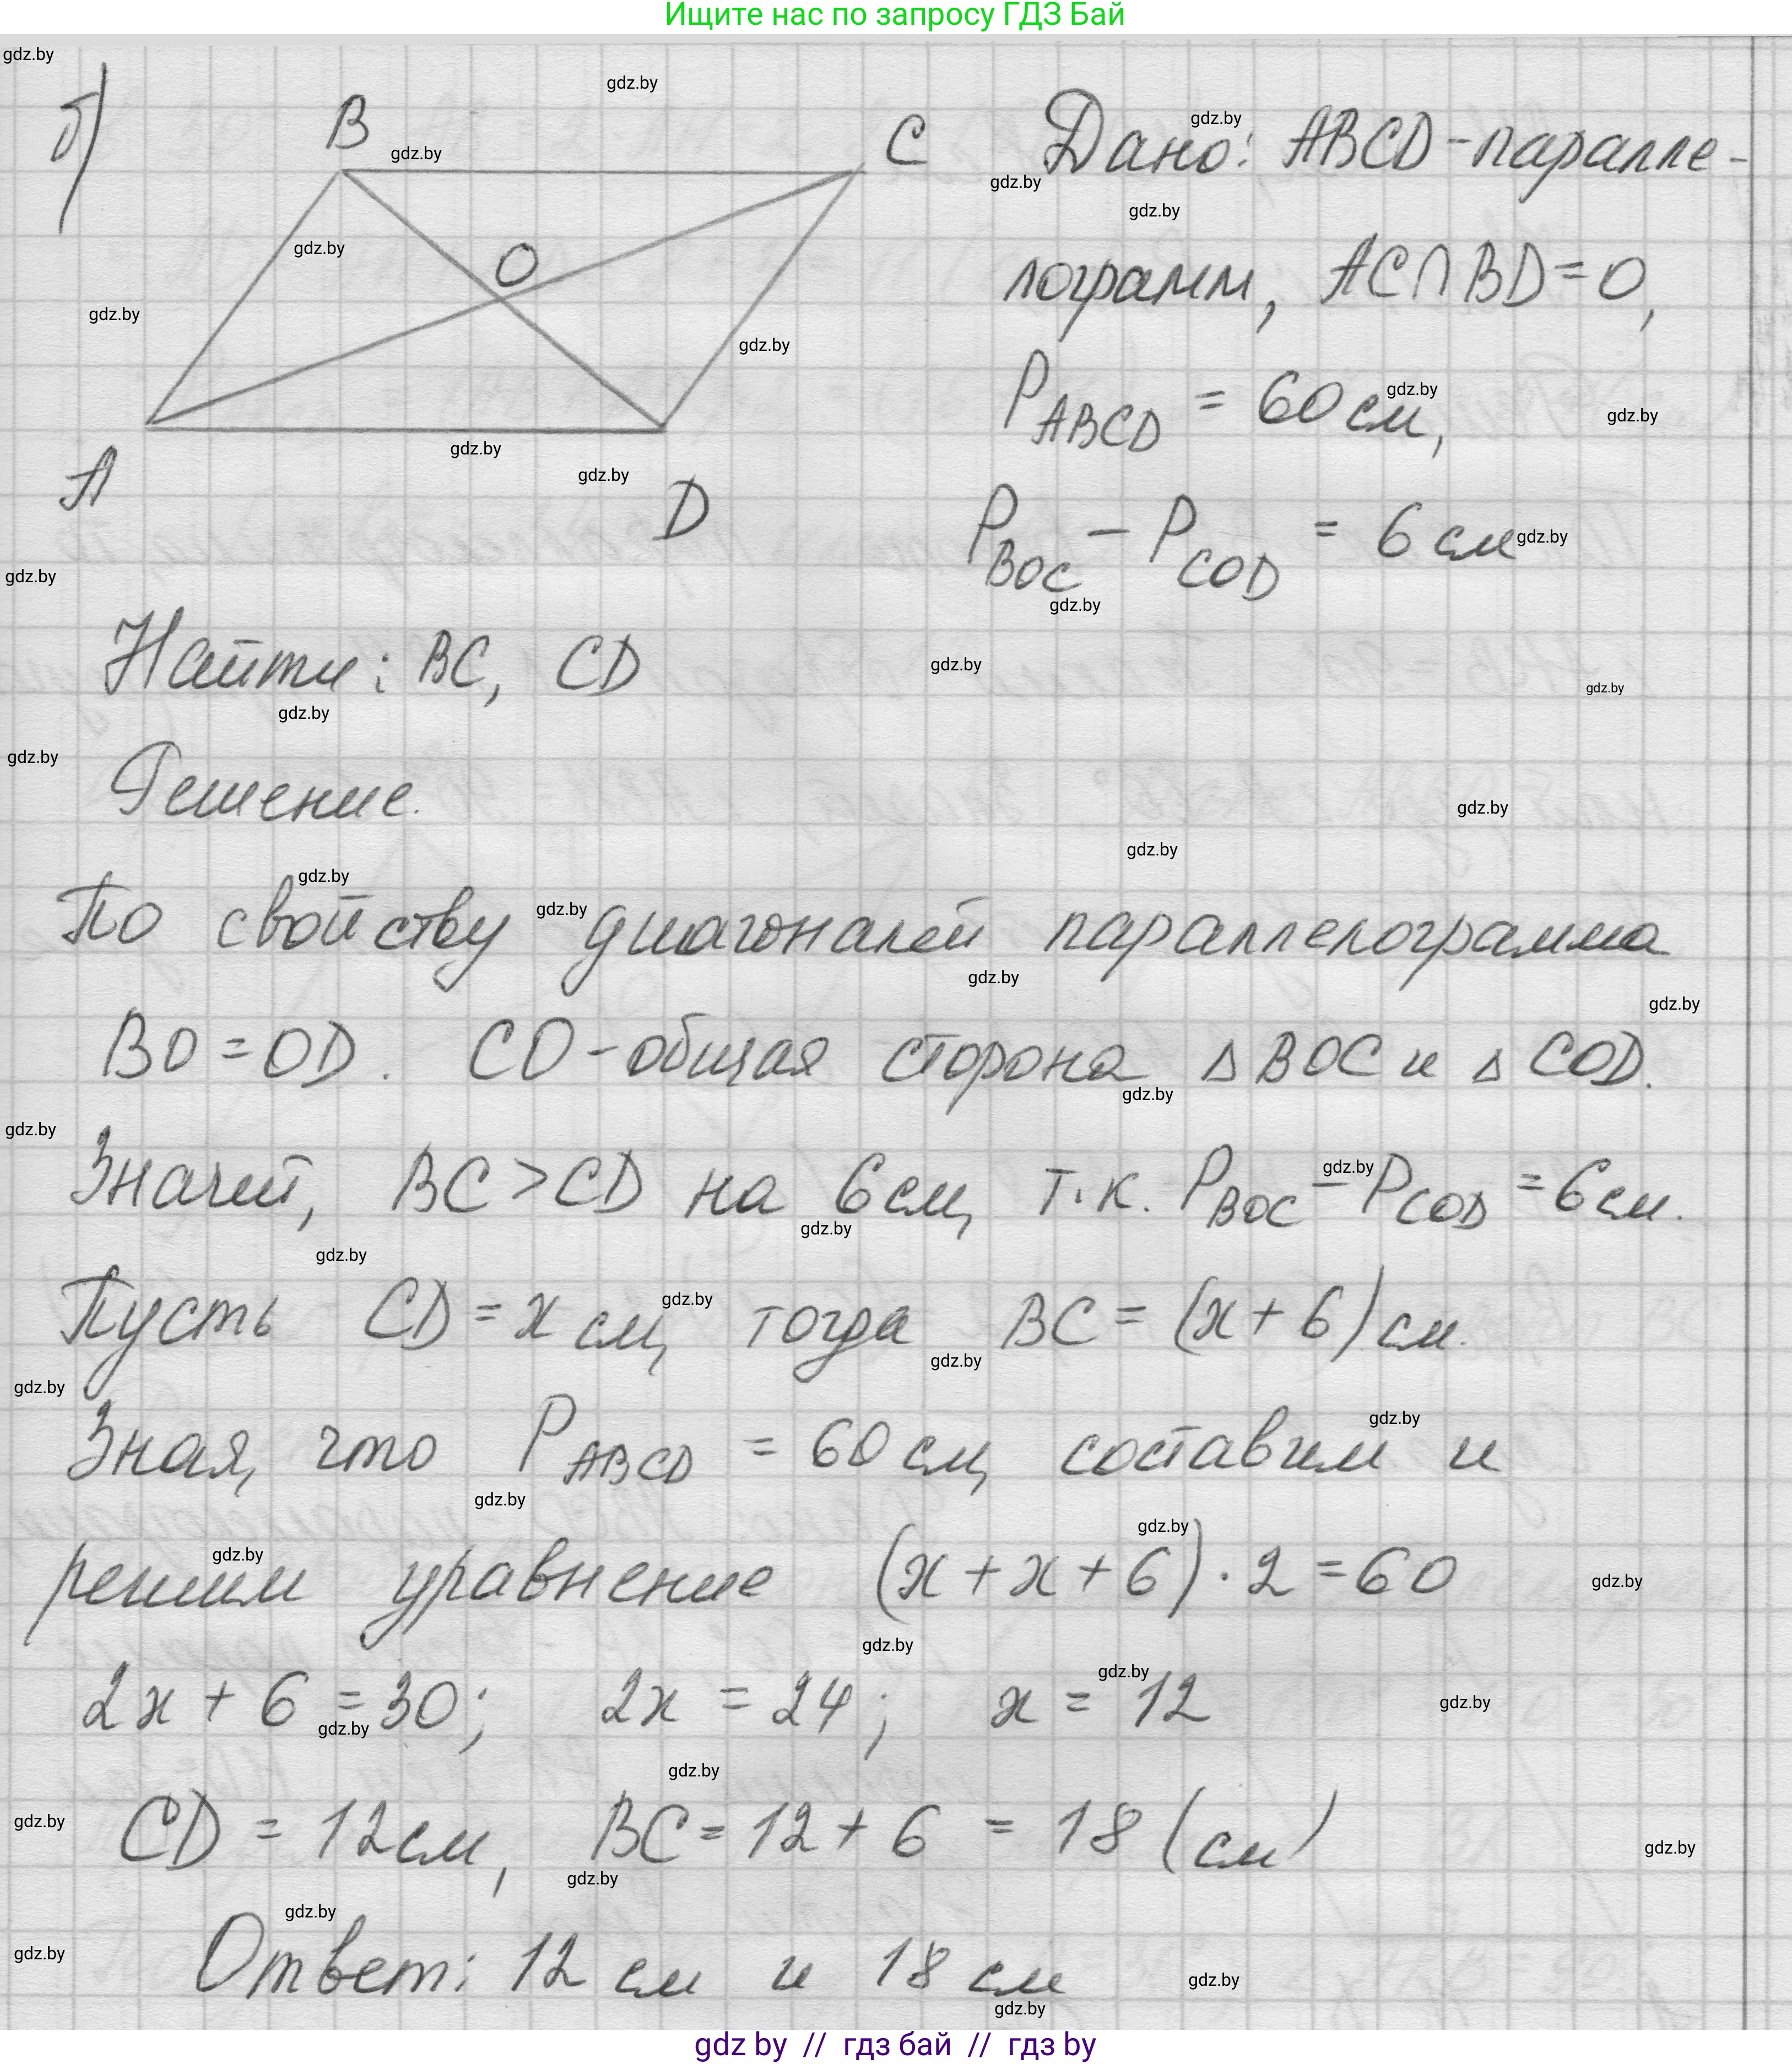 Ищите нас по запросу ГДЗ Бай
б)
B
C
O
A
D
Дано: ABCD - паралле-
лограмм, AC∩BD=O,
P_ABCD = 60 см,
P_BOC - P_COD = 6 см
Найти: BC, CD
Решение.
По свойству диагоналей параллелограмма
BO = OD. CO - общая сторона Δ BOC и Δ COD.
Значит, BC > CD на 6 см, т.к. P_BOC - P_COD = 6 см.
Пусть CD = x см, тогда BC = (x + 6) см.
Зная, что P_ABCD = 60 см, составим и
решим уравнение (x + x + 6) · 2 = 60
2x + 6 = 30; 2x = 24; x = 12
CD = 12 см, BC = 12 + 6 = 18 (см)
Ответ: 12 см и 18 см
gdz by // гдз бай // гдз by